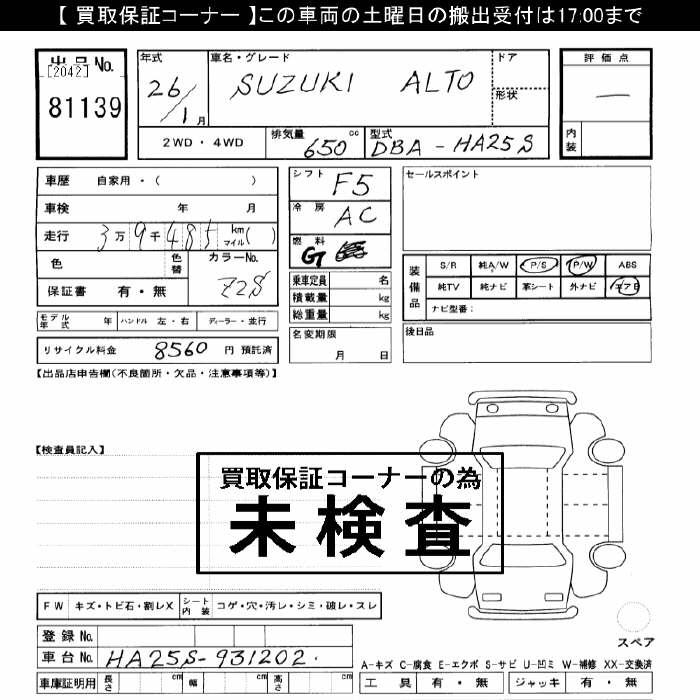 【 買取保証コーナー 】この車両の土曜日の搬出受付は17:00まで
出品No.
[2042]
81139
年式
26/1月
車名・グレード
SUZUKI ALTO
ドア
形状
評価点
—
内装
2WD・4WD
排気量
650cc
型式
DBA-HA25S
車歴 自家用・( )
車検 年 月
走行 3万9千485km マイル( )
色 色替 カラーNo.
Z2S
保証書 有・無
シフト F5
冷房 AC
燃料 G
乗車定員 名
積載量 kg
総重量 kg
セールスポイント
装備品
S/R 純A/W P/S P/W ABS
純TV 純ナビ 革シート 外ナビ エアB
ナビ型番:
モデル年式 年 ハンドル 左・右 ディーラー・並行
名変期限
月 日
後日品
リサイクル料金 8560 円 預託済
【出品店申告欄(不良箇所・欠品・注意事項等)】
【検査員記入】
買取保証コーナーの為
未検査
FW キズ・トビ石・割レX シート内装 コゲ・穴・汚レ・シミ・破レ・スレ
スペア
登録No.
車台No. HA25S-931202.
A-キズ C-腐食 E-エクボ S-サビ U-凹ミ W-補修 XX-交換済
車庫証明用 長さ cm 幅 cm 高さ cm
工具 有・無 ジャッキ 有・無